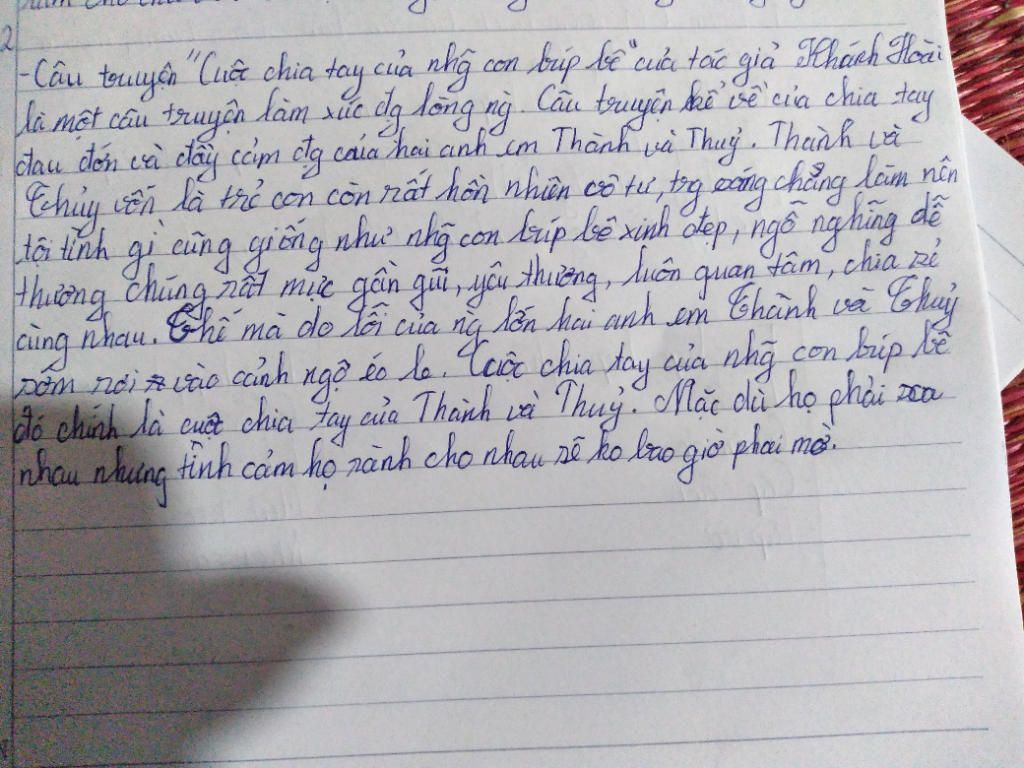 2
- Câu truyện "Cuộc chia tay của nhg̃ con búp bê" của tác giả Khánh Hoài
là một câu truyện làm xúc đg lòng ng̀. Câu truyện kể về của chia tay
đau đớn và đầy cảm đg của hai anh em Thành và Thuỷ. Thành và
Thủy vốn là trẻ con còn rất hồn nhiên vô tư, trg sáng chẳng làm nên
tội tình gì cũng giống như nhg̃ con búp bê xinh đẹp, ngộ nghĩng dễ
thương chúng rất mực gần gũi, yêu thương, luôn quan tâm, chia sẻ
cùng nhau. Thế mà do lỗi của ng̀ lớn hai anh em Thành và Thuỷ
sớm rơi vào cảnh ngộ éo le. Cuộc chia tay của nhg̃ con búp bê
đó chính là cuộc chia tay của Thành và Thuỷ. Mặc dù họ phải xa
nhau nhưng tình cảm họ rành cho nhau sẽ ko bao giờ phai mờ.